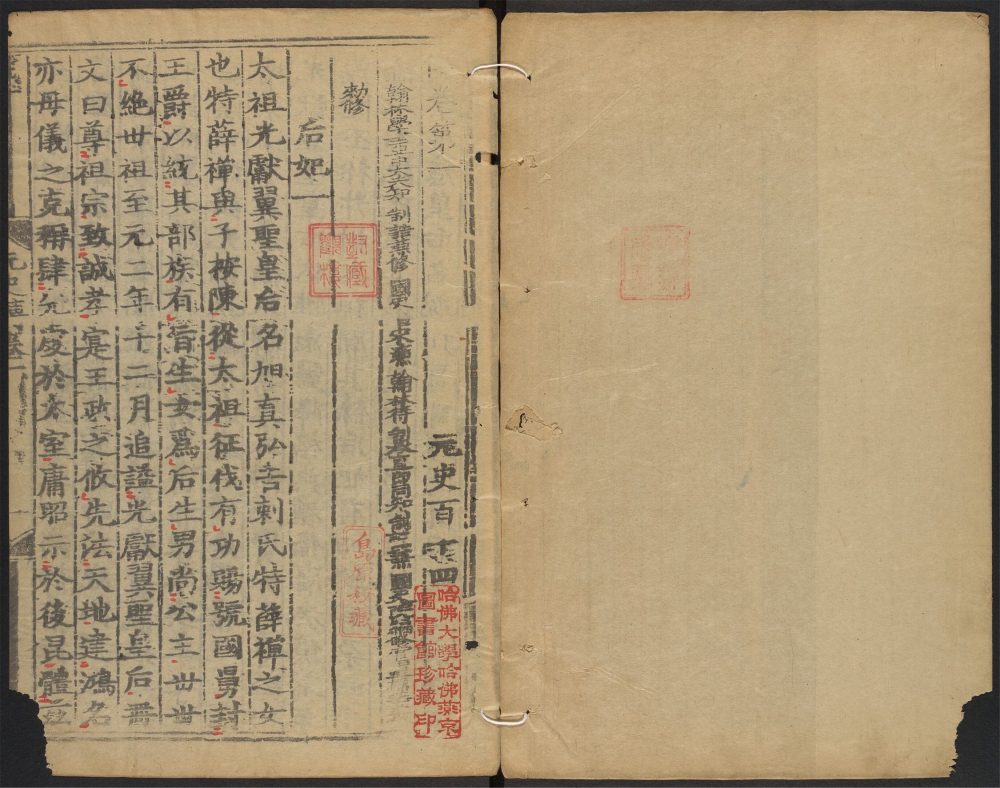 卷第一
元史百十四
翰林學士亞中大夫知制誥兼修國史臣宋濂翰林待制
勑修
后妃一
太祖光獻翼聖皇后名旭真弘吉剌氏特薛禪之女
也特薛禪與子按陳從太祖征伐有功賜號國舅封
王爵以統其部族有旨生女爲后生男尚公主世世
不絕世祖至元二年十二月追謚光獻翼聖皇后冊
文曰尊祖宗致誠孝寔王政之攸先法天地建鴻名
亦母儀之克稱肆先虔於太室庸昭示於後昆體
哈佛大學哈佛燕京
圖書館珍藏印